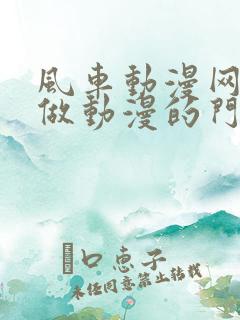 風车動漫网
做動漫的門
口恵子
未经同意禁止转载